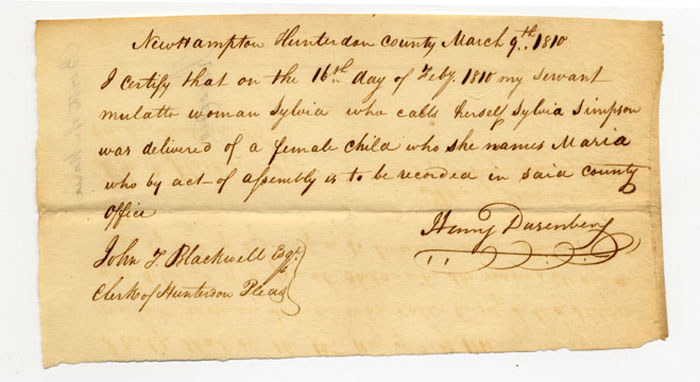 NewHampton Hunterdon County March 9th. 1810
I certify that on the 16th day of Feby. 1810 my servant
mulatto woman Sylvia who calls herself Sylvia Simpson
was delivered of a female child who she names Maria
who by act of assembly is to be recorded in said county
office
Henry Dusenbery
John T. Blackwell Esqr.
Clerk of Hunterdon Pleas